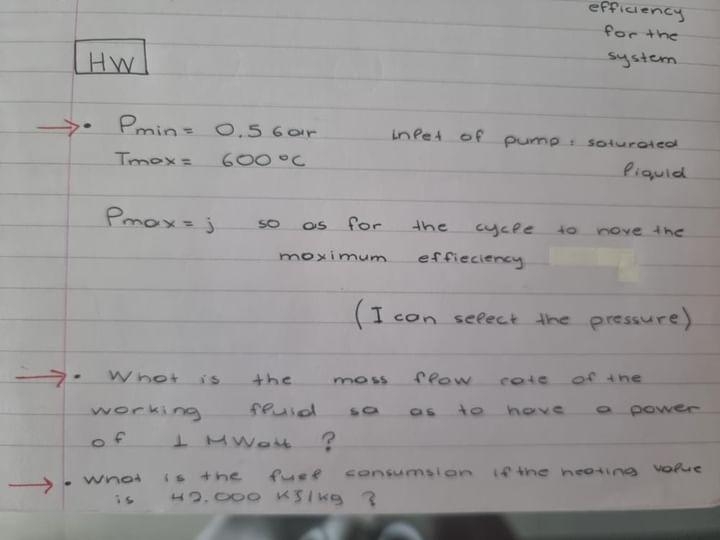 efficiency
for the
system
HW
→ • Pmin = 0.5 bar inlet of pump: saturated
Tmax = 600 °C liquid
Pmax = ; so as for the cycle to have the
maximum effieciency
(I can select the pressure)
→ • What is the mass flow rate of the
working fluid so as to have a power
of 1 MWatt ?
→ • What is the fuel consumsion if the heating value
is 42.000 KJ/kg ?